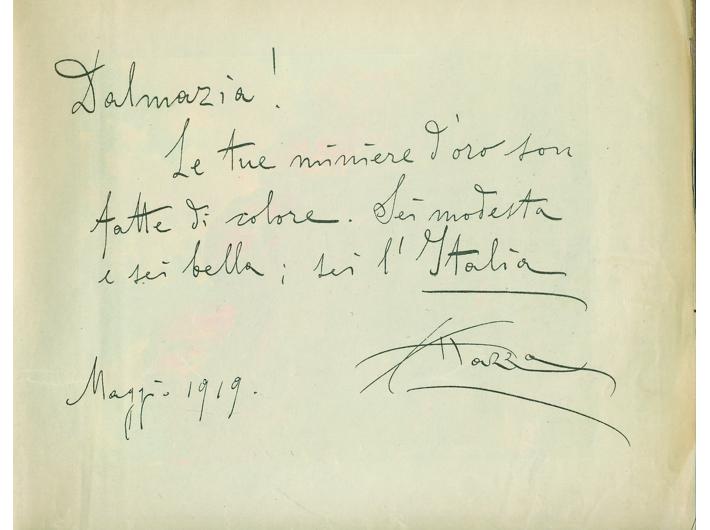 Dalmazia!
Le tue miniere d'oro son
fatte di colore. Sei modesta
e sei bella; sei l'Italia
Mazza
Maggio 1919.